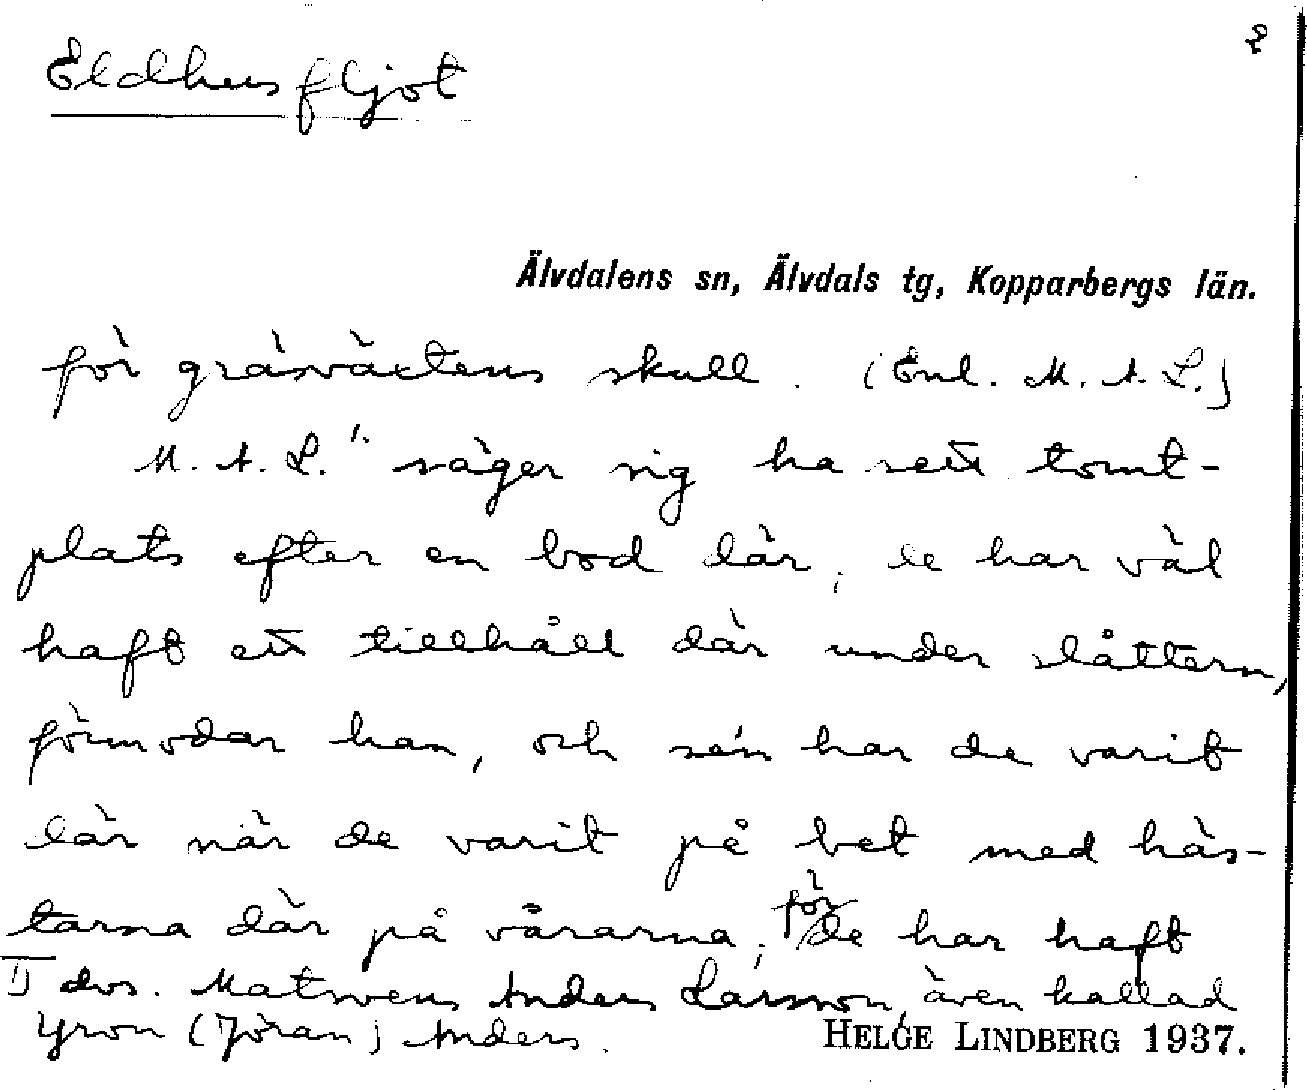 2
Eldhusfljot
Älvdalens sn, Älvdals tg, Kopparbergs län.
för gräsväxtens skull. (Enl. M. A. L.)
M. A. L. 1) säger sig ha sett tomt-
plats efter en bod där; de har väl
haft ett tillhåll där under slåttern,
förmodar han, och sén har de varit
där när de varit på bet med häs-
tarna där på vårarna; för de har haft
1) dvs. Matwens Anders Larsson, även kallad
Yron (Jöran) Anders.
HELGE LINDBERG 1937.